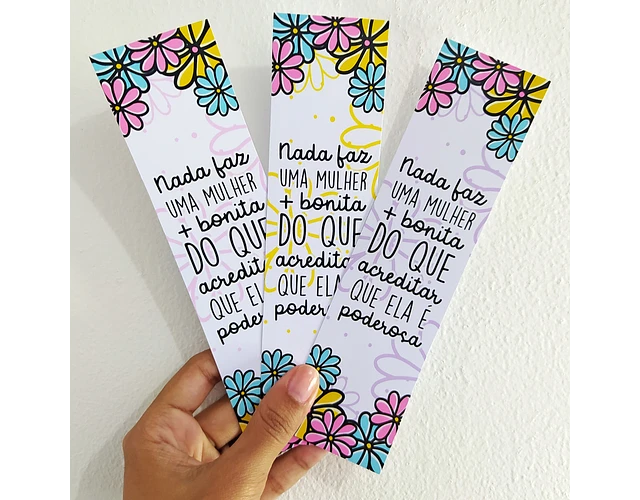 Nada faz
UMA MULHER
+ bonita
DO QUE
acreditar
QUE ELA
poder
Nada faz
UMA MULHER
+ bonita
DO QUE
acreditar
QUE ELA
poder
Nada faz
UMA MULHER
+ bonita
DO QUE
acreditar
QUE ELA É
poderosa